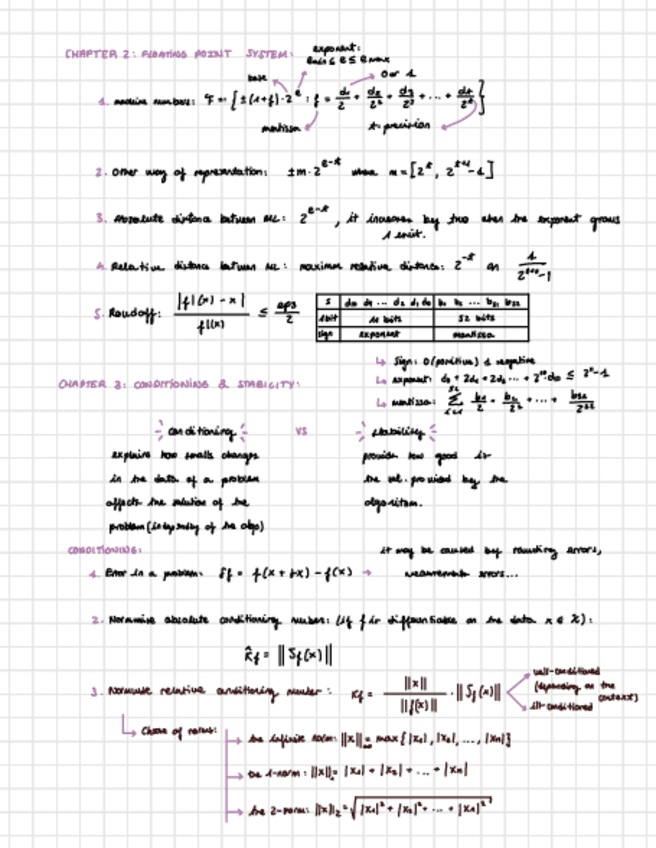 CHAPTER 2: FLOATING POINT SYSTEM:
exponent:
emin ≤ e ≤ e max
base
0 or 1
1. machine numbers: F = { ±(1+f)·2^e : f = d1/2 + d2/2² + d3/2³ + ... + dt/2^t }
mantissa
t = precision
2. Other way of representation: ±m·2^(e-t) when m = [2^t, 2^(t+1)-1]
3. Absolute distance between : 2^(e-t), it increases by two when the exponent grows
1 unit.
4. Relative distance between : maximum relative distance: 2^-t or
5. Roundoff: |fl(x) - x| / fl(x) ≤ eps/2
S d0 d1 ... d2 d1 d0 b1 b2 ... b51 b52
1bit 11 bits 52 bits
sign exponent mantissa
↳ Sign: 0 (positive) 1 negative
↳ exponent: d0 + 2d1 + 2d2 ... + 2^10 d10 ≤ 2^11-1
↳ mantissa: Σ b1/2 + b2/2² + ... + b52/2^52
CHAPTER 3: CONDITIONING & STABILITY:
conditioning VS stability
explains how smalls changes
in the data of a problem
affects the solution of the
problem (indepndly of the algo)
provide how good is
the sol. provided by the
algorithm.
CONDITIONING:
it may be caused by rounding errors,
measurements errors...
1. Error in a problem: δf = f(x + δx) - f(x) →
2. Normwise absolute conditioning number: (if f is differentiable on the data x ∈ X):
K̂f = ||Jf(x)||
3. Normwise relative conditioning number: Kf = ||x|| / ||f(x)|| · ||Jf(x)||
well-conditioned
(depending on the
context)
ill-conditioned
↳ Choose of norms:
→ the infinite norm: ||x||∞ = max{|x1|, |x2|, ..., |xn|}
→ the 1-norm: ||x||1 = |x1| + |x2| + ... + |xn|
→ the 2-norm: ||x||2 = √(|x1|² + |x2|² + ... + |xn|²)